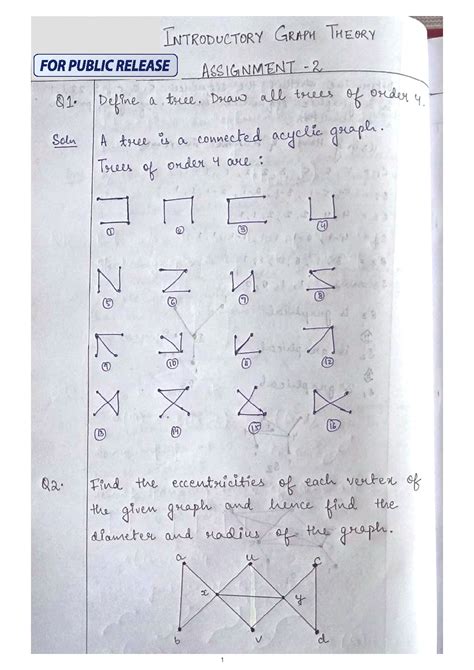 INTRODUCTORY GRAPH THEORY
FOR PUBLIC RELEASE
ASSIGNMENT - 2
Q1. Define a tree. Draw all trees of order 4.
Soln A tree is a connected acyclic graph.
Trees of order 4 are :
① ② ③ ④
⑤ ⑥ ⑦ ⑧
⑨ ⑩ ⑧ ⑫
⑬ ⑭ ⑮ ⑯
Q2. Find the eccentricities of each vertex of
the given graph and hence find the
diameter and radius of the graph.
a u c
x y
b v d
1